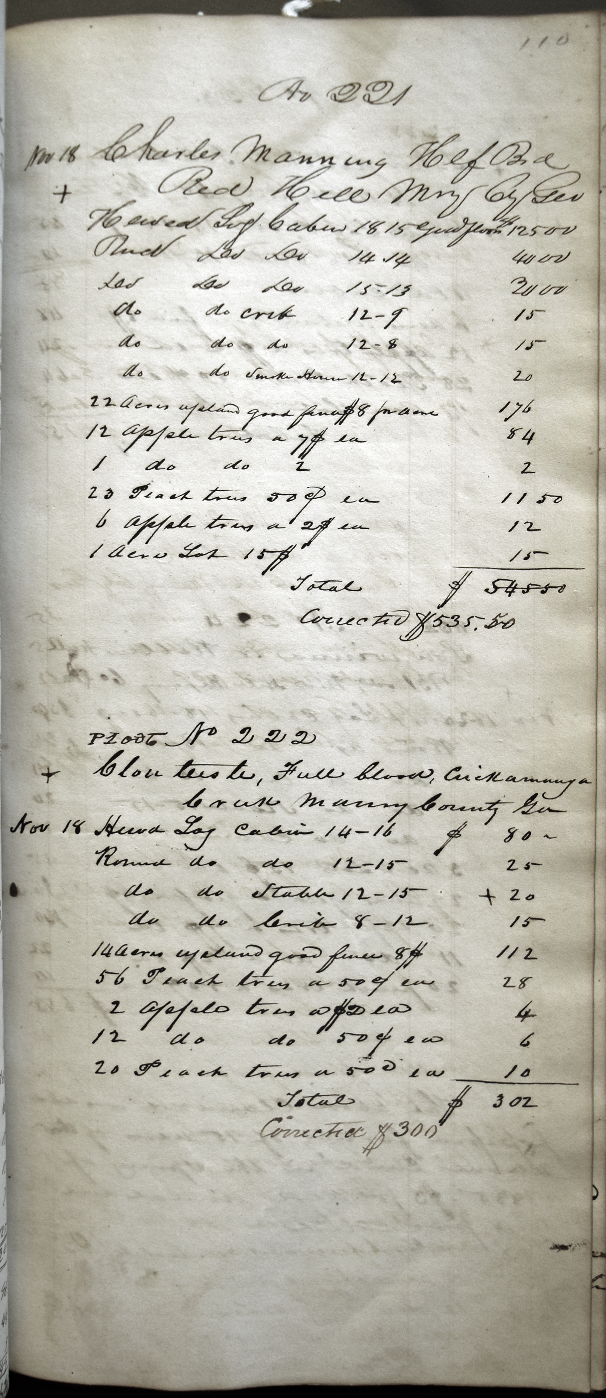 110
No 221
Nov 18 Charles Manning Hlf Bd
+ Red Hill Mry Cty Geo
Hewed Log Cabin 18 15 good floor 125 00
Rnd Do Do 14 14 40 00
Do Do Do 15-13 30 00
do do crib 12-9 15
do do do 12-8 15
do do Smoke House 12-12 20
22 Acres upland good fence $8 pr acre 176
12 Apple trees a 7$ ea 84
1 do do 2 2
23 Peach trees 50¢ ea 11 50
6 Apple trees a 2$ ea 12
1 Acre Lot 15$ 15
Total $ 545 50
Corrected $535.50
No 222
+ , Full blood, Chickamauga
Creek Murry County Geo
Nov 18 Hewd Log Cabin 14-16 $ 80 -
Round do do 12-15 25
do do Stable 12-15 + 20
do do Crib 8-12 15
14 Acres upland good fence 8$ 112
56 Peach trees a 50¢ ea 28
2 Apple trees a $2 ea 4
12 do do 50¢ ea 6
20 Peach trees a 50 ea 10
Total $ 302
Corrected $300